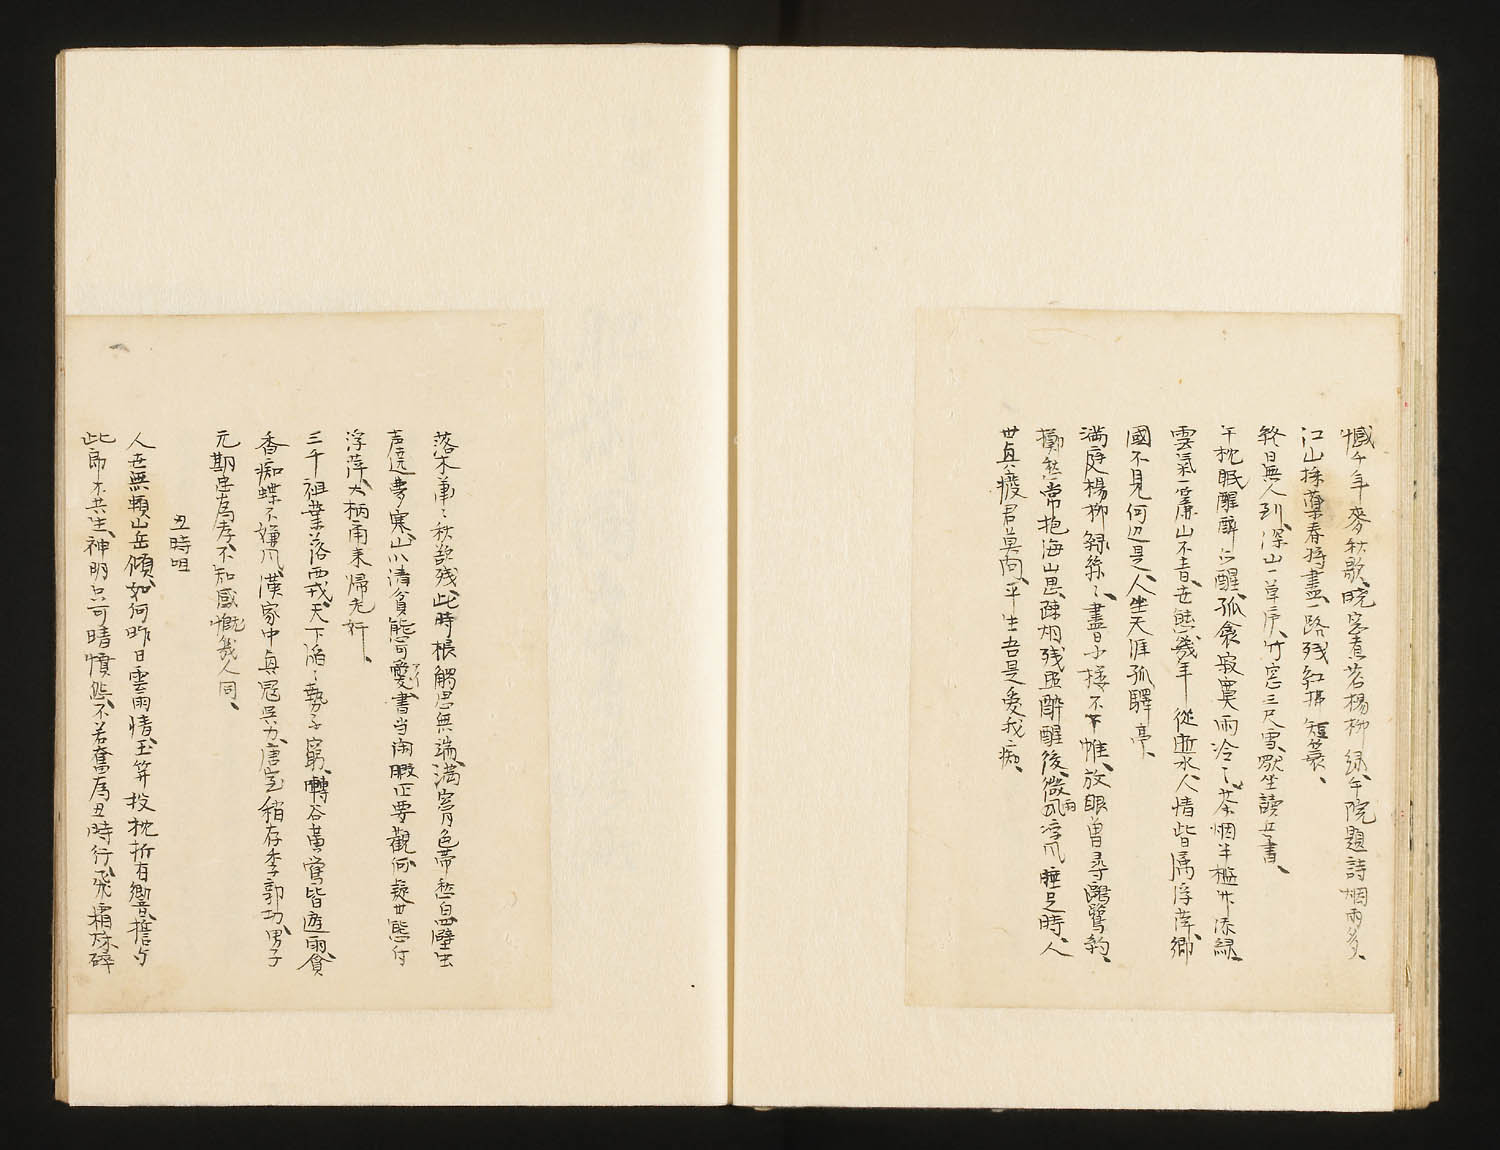 憾千年、麥秋歌、晩窓煮茗楊柳緑、午院題詩烟雨多、
江山採藥春将盡、一路残紅撲短簑、
終日無人到、深山一草序、竹窓三尺雪、默坐讀兵書、
午枕眠醒醉亦醒、孤衾寂寞雨冷々、茶烟半檻竹添緑、
雲氣一簾山不青、世態幾年従逝水、人情皆属浮萍、郷
國不見何辺是、人坐天涯孤驛亭、
満庭楊柳緑絲々、盡日小樓不下帷、放眼曽尋鷗鷺約、
擲愁常抱海山思、疎烟残照醉醒後、微雨凉風睡足時、人
世真癡君莫問、平生吾是愛我痴、
落木蕭々秋欲残、此時棖觸思無端、満窓月色帯愁白、四壁虫
声遶夢寒、山以清貧能可愛、書当閑暇正要觀、何疑世態付
浮萍、大柄南来帰老奸、
三千祖業落西戎、天下滔々勢子窮、轉谷黄鶯皆遊雨、貪
香痴蝶不嫌風、漢家中真冠呉力、唐室稍存李郭功、男子
元期忠為孝、不知感慨幾人同、
丑時咀
人世無頼山岳傾、如何昨日雲雨情、玉笄投枕折有響、誓与
此郎不共生、神明只可晴憤怨、不若奮為丑時行、飛霜爍碎